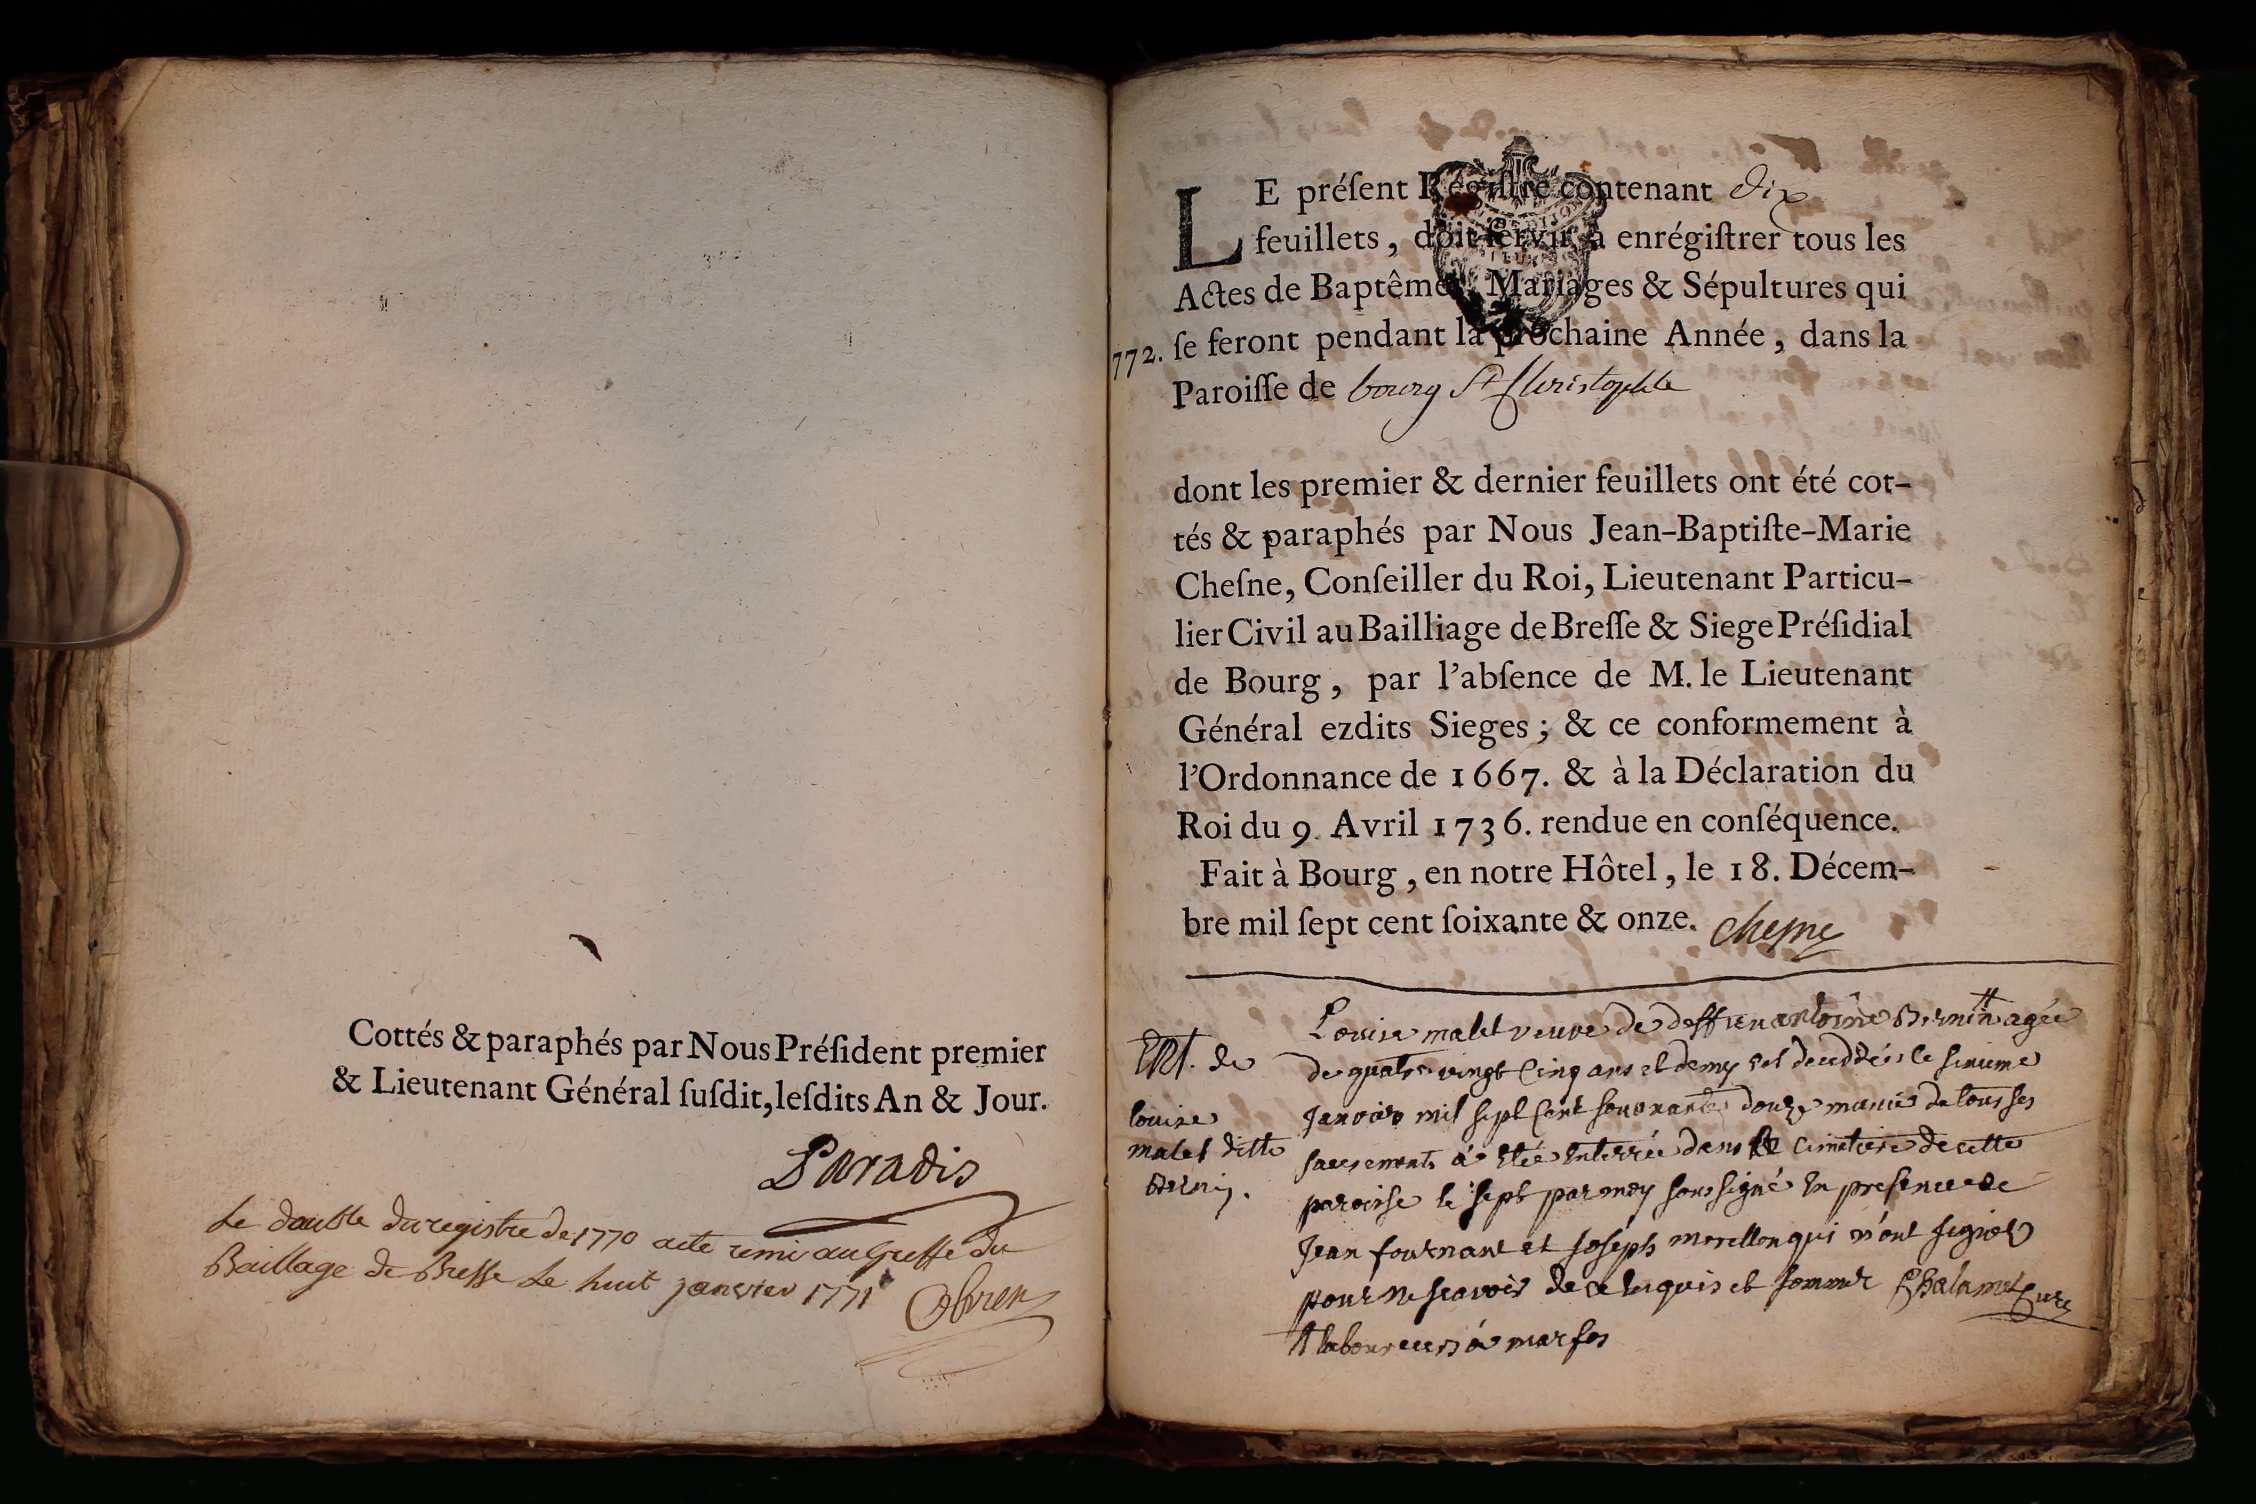 Cottés & paraphés par Nous Préſident premier
& Lieutenant Général ſuſdit, leſdits An & Jour.
Paradis
Le double du registre de 1770 a été remi au Greffe du
Baillage de Bresse Le huit janvier 1771
LE préſent Régiſtre contenant dix
feuillets, doit ſervir à enrégiſtrer tous les
Actes de Baptêmes, Mariages & Sépultures qui
772. ſe feront pendant la prochaine Année, dans la
Paroiſſe de bourg St Christophle
dont les premier & dernier feuillets ont été cot-
tés & paraphés par Nous Jean-Baptiſte-Marie
Cheſne, Conſeiller du Roi, Lieutenant Particu-
lier Civil au Bailliage de Breſſe & Siege Préſidial
de Bourg, par l'abſence de M. le Lieutenant
Général ezdits Sieges; & ce conformement à
l'Ordonnance de 1667. & à la Déclaration du
Roi du 9. Avril 1736. rendue en conſéquence.
Fait à Bourg, en notre Hôtel, le 18. Décem-
bre mil ſept cent ſoixante & onze. Chesne
ERt. de
louise
malet ditte
bernin.
Louise malet veuve de deffun antoine Bernin # agée
de quatre vingt Cinq ans et demy est deceddée le
Janvier mil sept Cent soixante douze munie de tous ses
sacrements a Etée Enterrée dans le cimetiere de cette
paroisse le sept par moy soussigné En presence de
Jean fournant et Joseph morellon qui n'ont signer
pour ne scavoir de ce Enquis et sommer Chalamel Curé
# laboureur à marfos